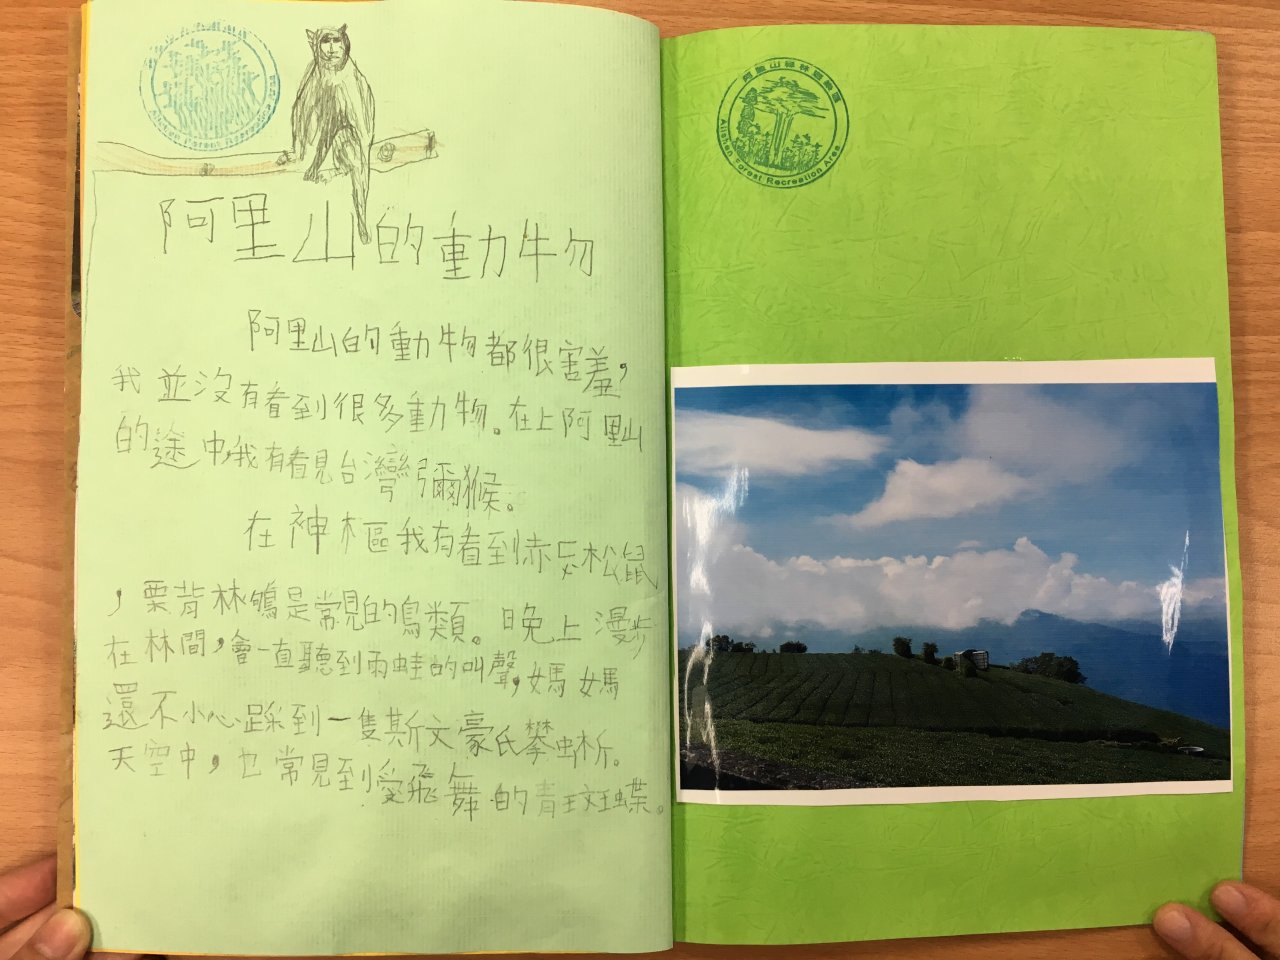 阿里山的動物
阿里山的動物都很害羞，
我並沒有看到很多動物。在上阿里山
的途中，我有看見台灣獼猴。
在神木區我有看到赤腹松鼠
，栗背林鴝是常見的鳥類。晚上漫步
在林間，會一直聽到雨蛙的叫聲，媽媽
還不小心踩到一隻斯文豪氏攀蜥。
天空中，也常見到愛飛舞的青斑蝶。
Alishan Forest Recreation Area
阿里山森林遊樂區
Alishan Forest Recreation Area